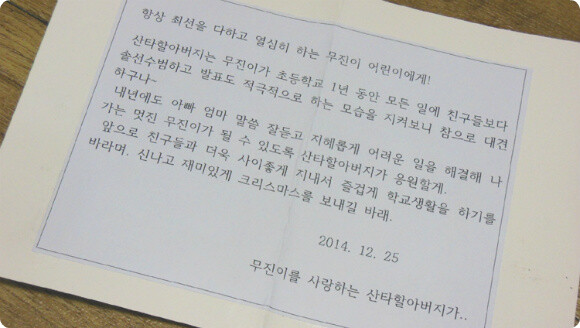 항상 최선을 다하고 열심히 하는 무진이 어린이에게!
산타할아버지는 무진이가 초등학교 1년 동안 모든 일에 친구들보다
솔선수범하고 발표도 적극적으로 하는 모습을 지켜보니 참으로 대견
하구나~
내년에도 아빠 엄마 말씀 잘듣고 지혜롭게 어려운 일을 해결해 나
가는 멋진 무진이가 될 수 있도록 산타할아버지가 응원할게.
앞으로 친구들과 더욱 사이좋게 지내서 즐겁게 학교생활을 하기를
바라며. 신나고 재미있게 크리스마스를 보내길 바래.
2014. 12. 25
무진이를 사랑하는 산타할아버지가..